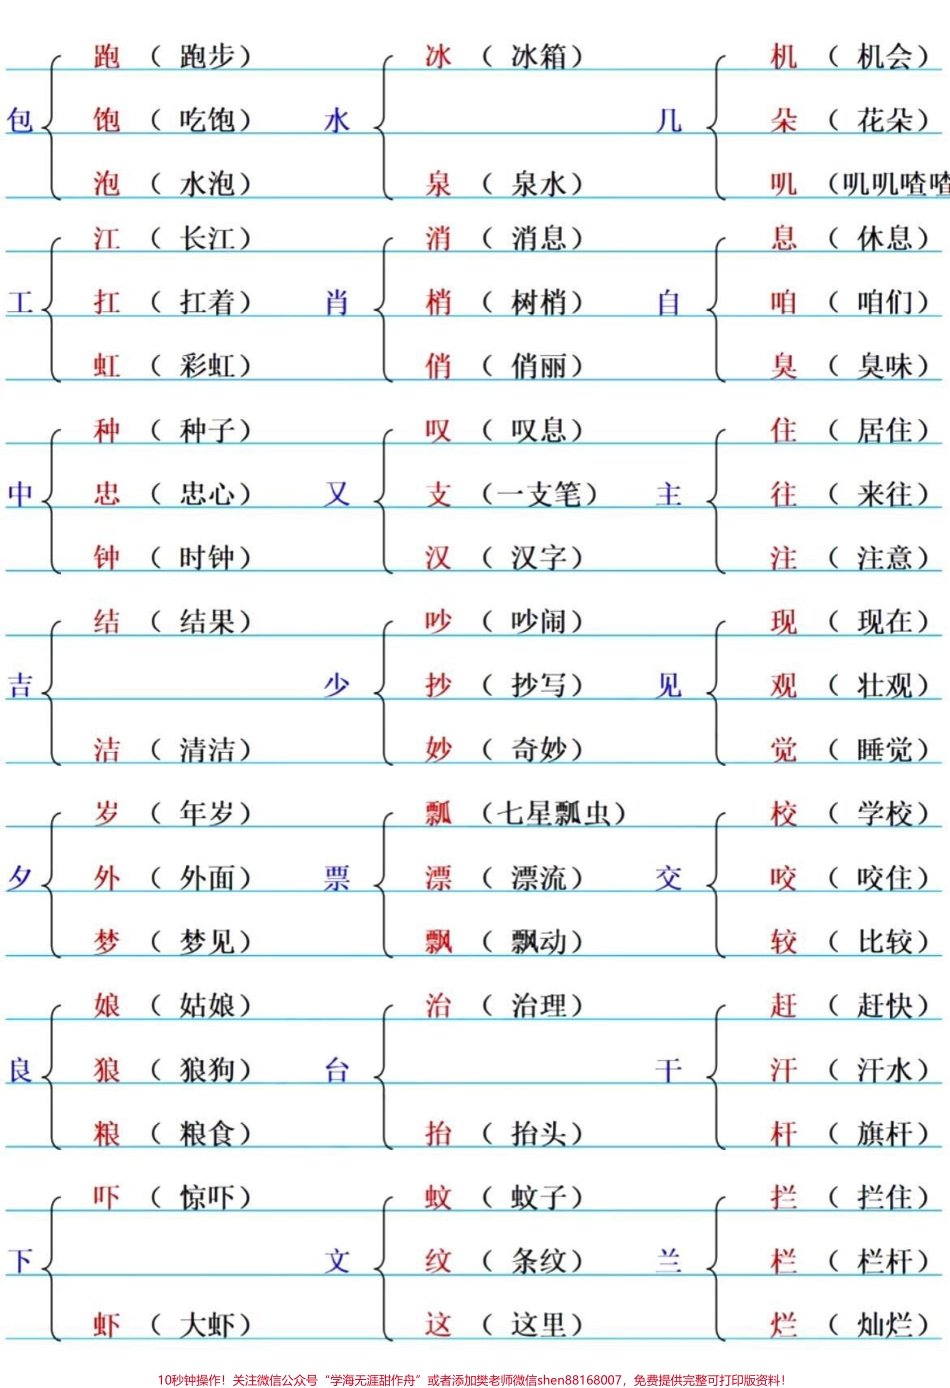 跑 （ 跑步） 冰 （ 冰箱） 机 （ 机会）
包 饱 （ 吃饱） 水 几 朵 （ 花朵）
泡 （ 水泡） 泉 （ 泉水） 叽 （叽叽喳喳
江 （ 长江） 消 （ 消息） 息 （ 休息）
工 扛 （ 扛着） 肖 梢 （ 树梢） 自 咱 （ 咱们）
虹 （ 彩虹） 俏 （ 俏丽） 臭 （ 臭味）
种 （ 种子） 叹 （ 叹息） 住 （ 居住）
中 忠 （ 忠心） 又 支 （一支笔） 主 往 （ 来往）
钟 （ 时钟） 汉 （ 汉字） 注 （ 注意）
结 （ 结果） 吵 （ 吵闹） 现 （ 现在）
吉 少 抄 （ 抄写） 见 观 （ 壮观）
洁 （ 清洁） 妙 （ 奇妙） 觉 （ 睡觉）
岁 （ 年岁） 瓢 （七星瓢虫） 校 （ 学校）
夕 外 （ 外面） 票 漂 （ 漂流） 交 咬 （ 咬住）
梦 （ 梦见） 飘 （ 飘动） 较 （ 比较）
娘 （ 姑娘） 治 （ 治理） 赶 （ 赶快）
良 狼 （ 狼狗） 台 干 汗 （ 汗水）
粮 （ 粮食） 抬 （ 抬头） 杆 （ 旗杆）
吓 （ 惊吓） 蚊 （ 蚊子） 拦 （ 拦住）
下 文 纹 （ 条纹） 兰 栏 （ 栏杆）
虾 （ 大虾） 这 （ 这里） 烂 （ 灿烂）
10秒钟操作！关注微信公众号“学海无涯甜作舟”或者添加樊老师微信shen88168007，免费提供完整可打印版资料！